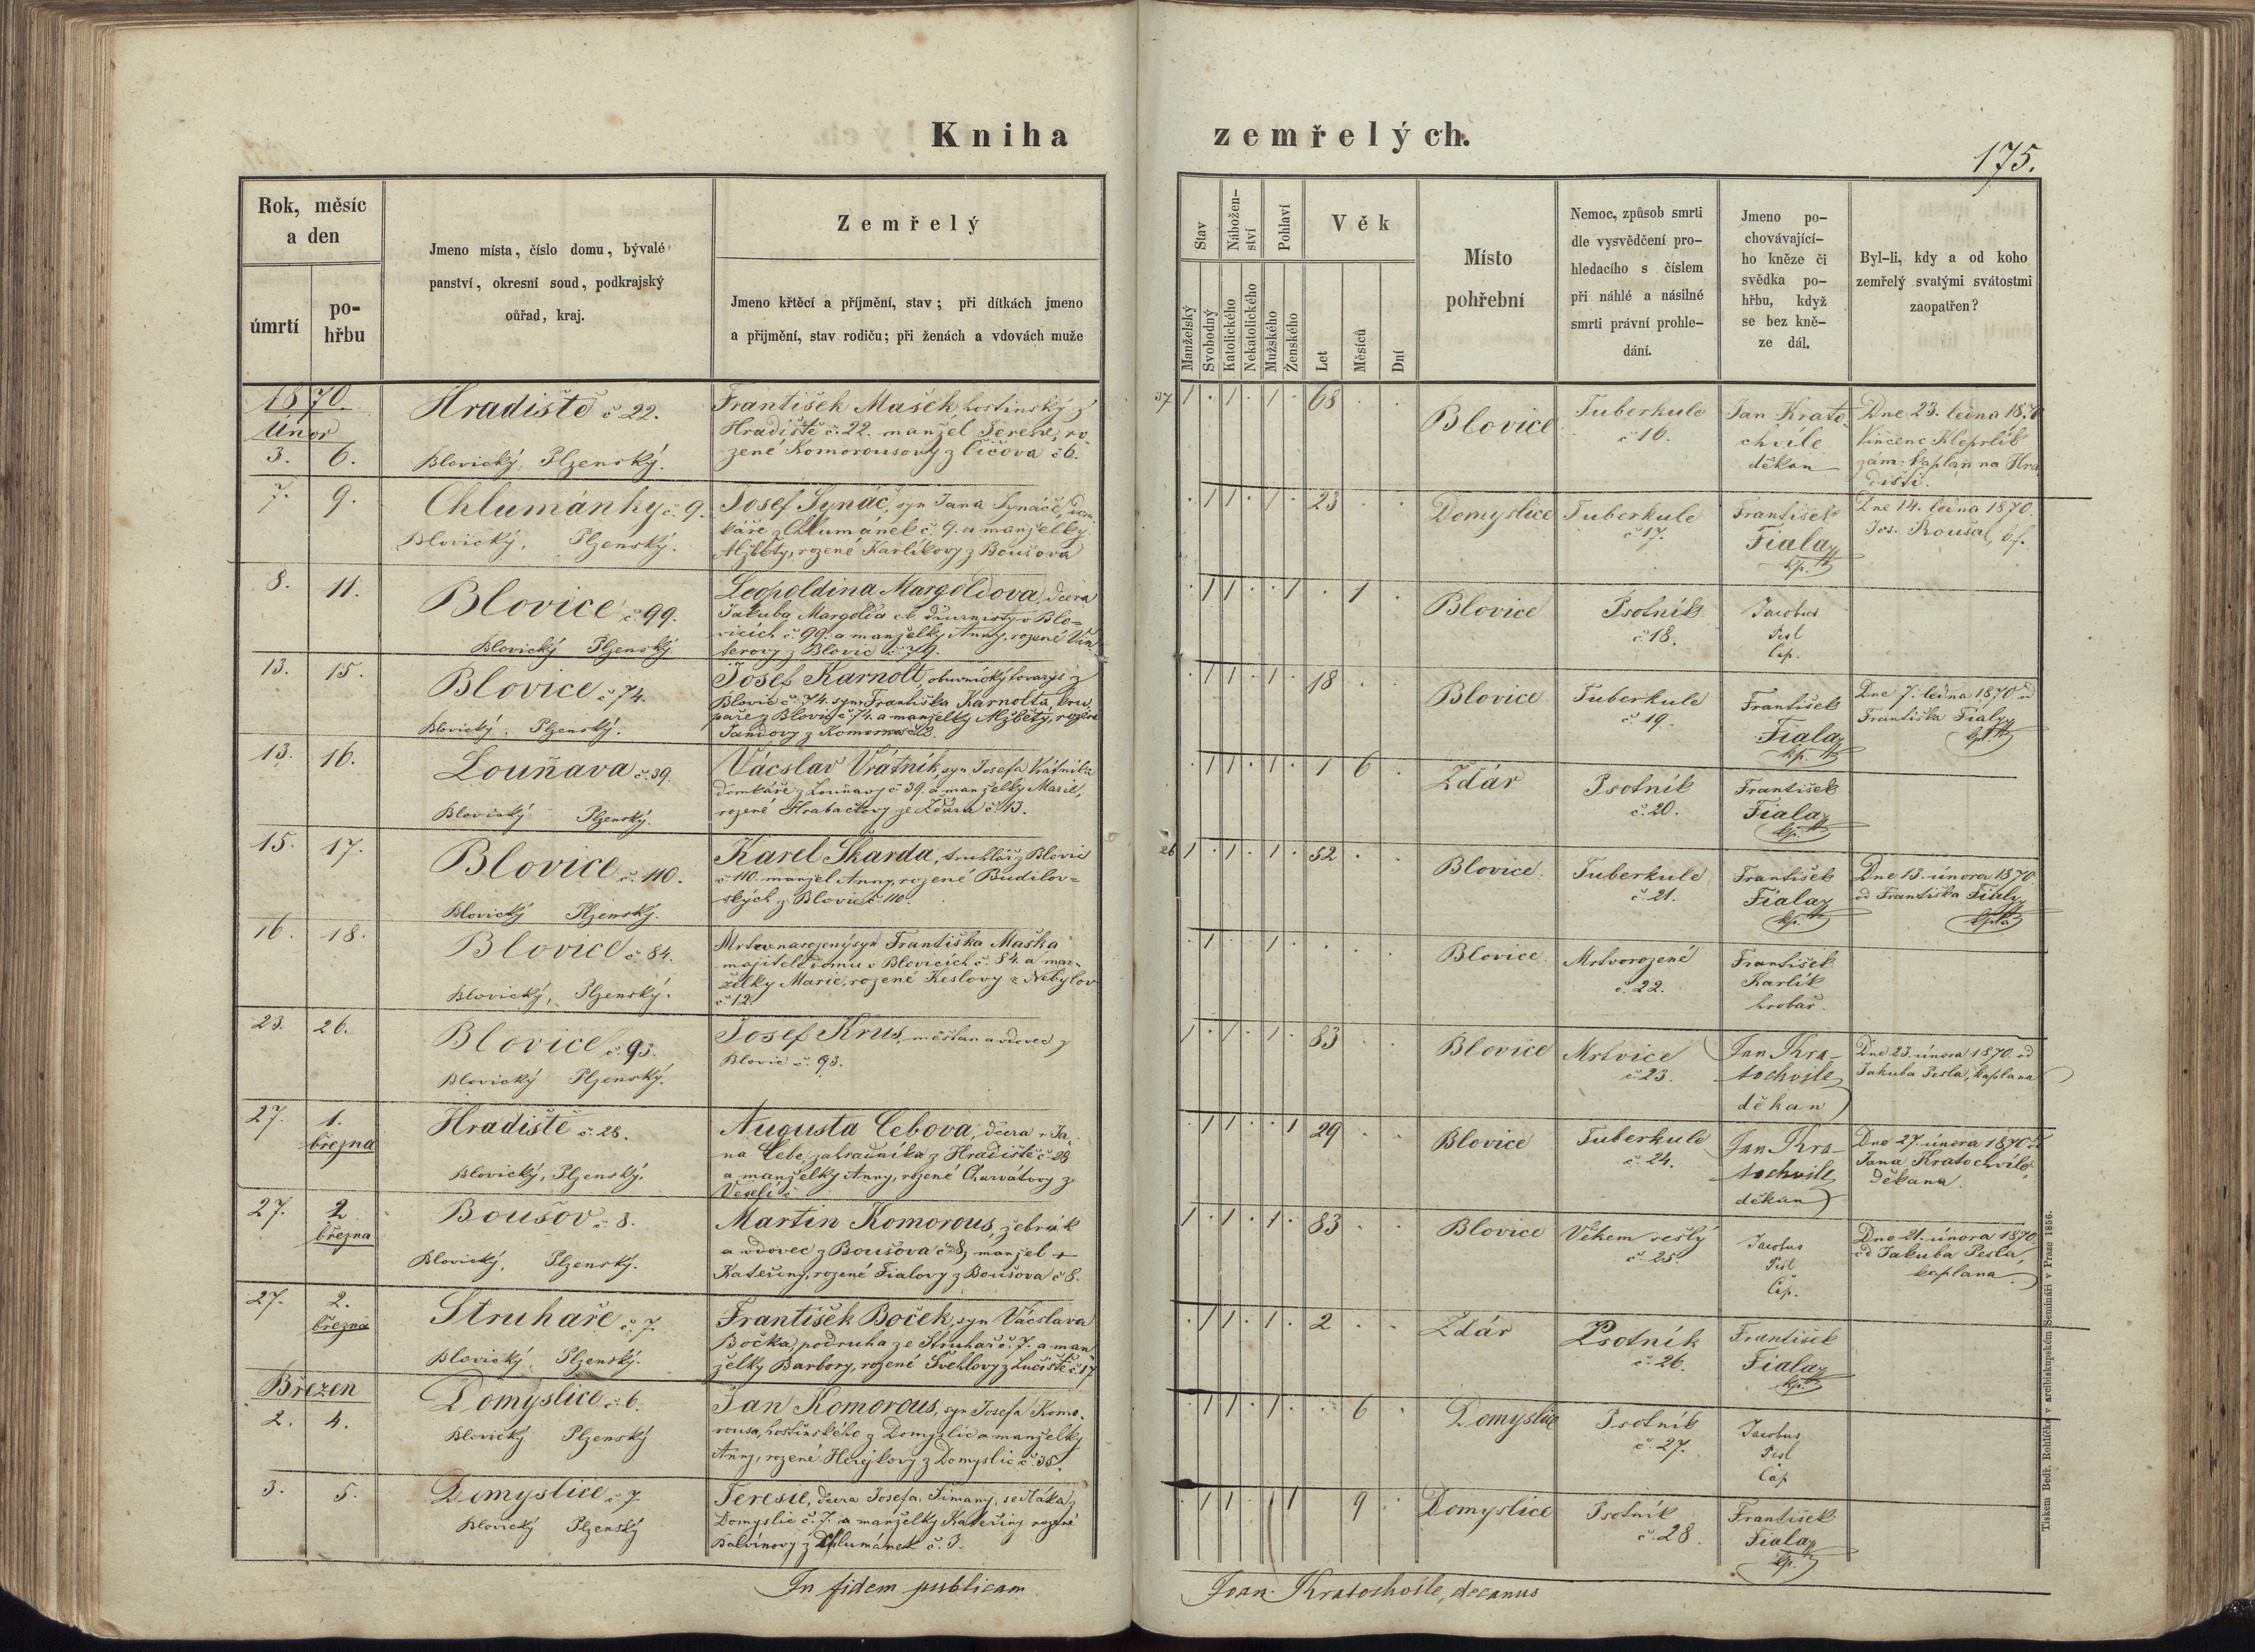 Kniha zemřelých.
175.
Rok, měsíc
a den
úmrtí
po-
hřbu
Jmeno místa, číslo domu, bývalé
panství, okresní soud, podkrajský
oúřad, kraj.
Zemřelý
Jmeno křtěcí a příjmění, stav; při dítkách jmeno
a přijmění, stav rodiču; při ženách a vdovách muže
Stav
Manželský
Svobodný
Nábožen-
ství
Katolického
Nekatolického
Pohlaví
Mužského
Ženského
Věk
Let
Měsíců
Dní
Místo
pohřební
Nemoc, způsob smrti
dle vysvědčení pro-
hledacího s číslem
při náhlé a násilné
smrti právní prohle-
dání.
Jmeno po-
chovávající-
ho kněze či
svědka po-
hřbu, když
se bez kně-
ze dál.
Byl-li, kdy a od koho
zemřelý svatými svátostmi
zaopatřen?
1870.
Únor
3. 6.
Hradiště č. 22.
Blovický, Plzenský.
František Mašek, hostinský z
Hradiště č. 22. manžel Teresie, ro
zené Komorousovy z Číčova č 6.
37 1 . 1 . 1 . 68 . .
Blovice
Tuberkule
č 16.
Jan Krato
chvíle
děkan
Dne 23. ledna 1870
Vincenc Kleprlík
zám. kaplan na Hra
dišti.
7. 9.
Chlumánky č. 9.
Blovický, Plzenský.
Josef Synáč, syn Jana Synáče, dom
káře z Chlumánek č. 9. a manželky
Alžběty, rozené Karlíkovy z Boušova
. 1 1 . 1 . 23 . .
Domyslice
Tuberkule
č 17.
František
Fiala
kp.
Dne 14. ledna 1870.
Jos. Roušal, bf.
8. 11.
Blovice č. 99.
Blovický Plzenský
Leopoldina Margoldova, dcera
Jakuba Margolda c.k. diurnisty v Blo-
vicích č. 99. a manželky Anny, rozené
z Blovic č. 79.
. 1 1 . . 1 . 1 .
Blovice
Psotník
č 18.
Jacobus
Pesl
Cap.
13. 15.
Blovice č. 74.
Blovický. Plzenský.
Josef Karnolt, obuvnický tovaryš z
Blovic č. 74. syn Františka Karnolta, kru
paře z Blovic č. 74. a manželky Alžběty, rozené
Jandovy z Komorna č. 13.
. 1 1 . 1 . 18 . .
Blovice
Tuberkule
č. 19.
František
Fiala
kp.
Dne 7. ledna 1870 od
Františka Fialy
kpl.
13. 16.
Louňava č. 39.
Blovický Plzenský.
Vácslav Vrátník, syn Josefa Vrátníka
domkáře z Louňavy č 39. a manželky Marie,
rozené Hrabačkovy ze Žďára č. 13.
. 1 1 . 1 . 1 6 .
Ždár
Psotník
č. 20.
František
Fiala
kp.
15. 17.
Blovice č. 110.
Blovický Plzenský.
Karel Škarda, truhlář z Blovic
č. 110. manžel Anny, rozené Budilov-
ských z Blovic č. 110.
26 1 . 1 . 1 . 52 . .
Blovice.
Tuberkule
č. 21.
František
Fiala
kp.
Dne 13. února 1870
od Františka Fialy
kpla
16. 18.
Blovice č. 84.
Blovický, Plzenský.
Mrtvě narozený syn Františka Maška
majitele domu v Blovicích č. 84. a man-
želky Marie, rozené Keslovy z Nebylov
č 12.
. 1 . . 1 . . . .
Blovice.
Mrtvorozené
č. 22.
František
Karlík
hrobař.
23. 26.
Blovice č. 93.
Blovický Plzenský.
Josef Krus, měšťan a vdovec z
Blovic č. 93.
1 . 1 . 1 . 83 . .
Blovice
Mrtvice
č. 23.
Jan Kra-
tochvíle
děkan
Dne 23. února 1870. od
Jakuba Pesla, kaplana
27. 1.
března
Hradiště č. 28.
Blovický, Plzenský.
Augusta Cebova, dcera + Ja-
na Cebe, zahradníka z Hradiště č. 28
a manželky Anny, rozené Charvátovy z
Veselí č
. 1 1 . . 1 29 . .
Blovice
Tuberkule
č. 24.
Jan Kra-
tochvíle
děkan
Dne 27. února 1870 od
Jana Kratochvíle,
děkana.
27. 2
března
Boušov č. 8.
Blovický, Plzenský.
Martin Komorous, žebrák
a vdovec z Boušova č. 8, manžel +
Kateřiny, rozené Fialovy z Boušova č 8.
1 . 1 . 1 . 83 . .
Blovice
Věkem sešlý
č. 25.
Jacobus
Pesl
Cap.
Dne 21. února 1870.
od Jakuba Pesla,
kaplana
27. 2.
března
Struhaře č. 7.
Blovický Plzenský.
František Boček, syn Vácslava
Bočka, podruha ze Struhař č. 7. a man
želky Barbory, rozené Švehlovy z Lučiště č 17
. 1 1 . 1 . 2 . .
Ždár
Psotník
č. 26.
František
Fiala
kp.
Březen
2. 4.
Domyslice č. 6.
Blovický Plzenský
Jan Komorous, syn Josefa Komo-
rousa, hostinského z Domyslic a manželky
Anny, rozené Herejkovy z Domyslic č. 35.
. 1 1 . 1 . . 6 .
Domyslic
Psotník
č. 27.
Jacobus
Pesl
Cap
3. 5.
Domyslice č. 7
Blovický Plzenský
Teresie, dcera Josefa Šimany, sedláka z
Domyslic č. 7. a manželky Kateřiny rozené
Balvínovy z Chlumánek č. 3.
. 1 1 . 1 9 .
Domyslice
Psotník
č. 28.
František
Fiala
kp.
In fidem publicam
Joan. Kratochvíle, decanus
Tiskem Bedř. Rohlíčka v arcibiskupském Semináři v Praze 1856.